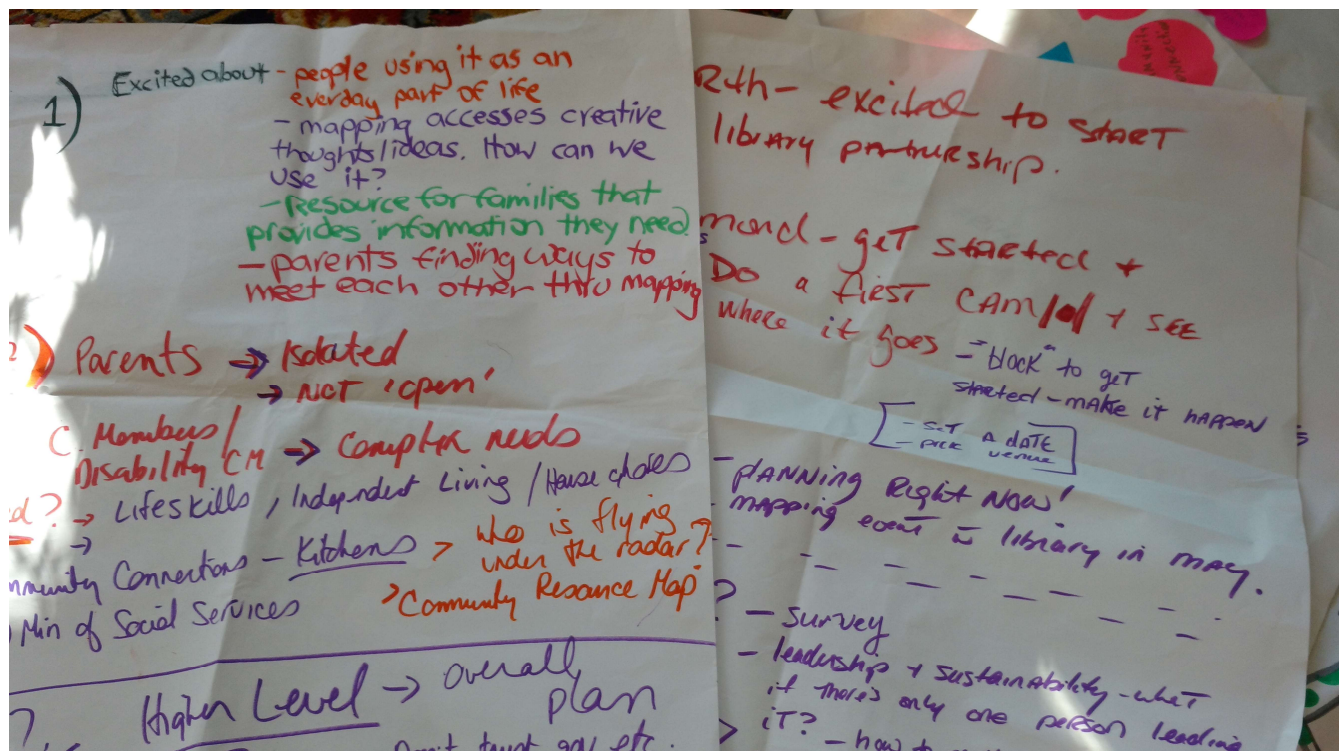 1) Excited about - people using it as an
everday part of life
- mapping accesses creative
thoughts/ideas. How can we
use it?
- Resource for families that
provides information they need
- parents finding ways to
meet each other thru mapping
2) Parents → Isolated
→ NOT 'open'
C. Members/
Disability CM → Complex needs
→ Lifeskills, Independent Living / House chores
→
Connections - Kitchens > who is flying
under the radar?
> Community Resource Map
Min of Social Services
Higher Level → overall
plan
trust gov etc.
- excited to START
library partnership.
- get started +
Do a first CAM + SEE
where it goes - "block" to get
started - make it happen
- set a date
- pick venue
- planning Right Now!
- mapping event in library in may.
- survey
- leadership + sustainability - what
if there's only one person leading
it? - how to